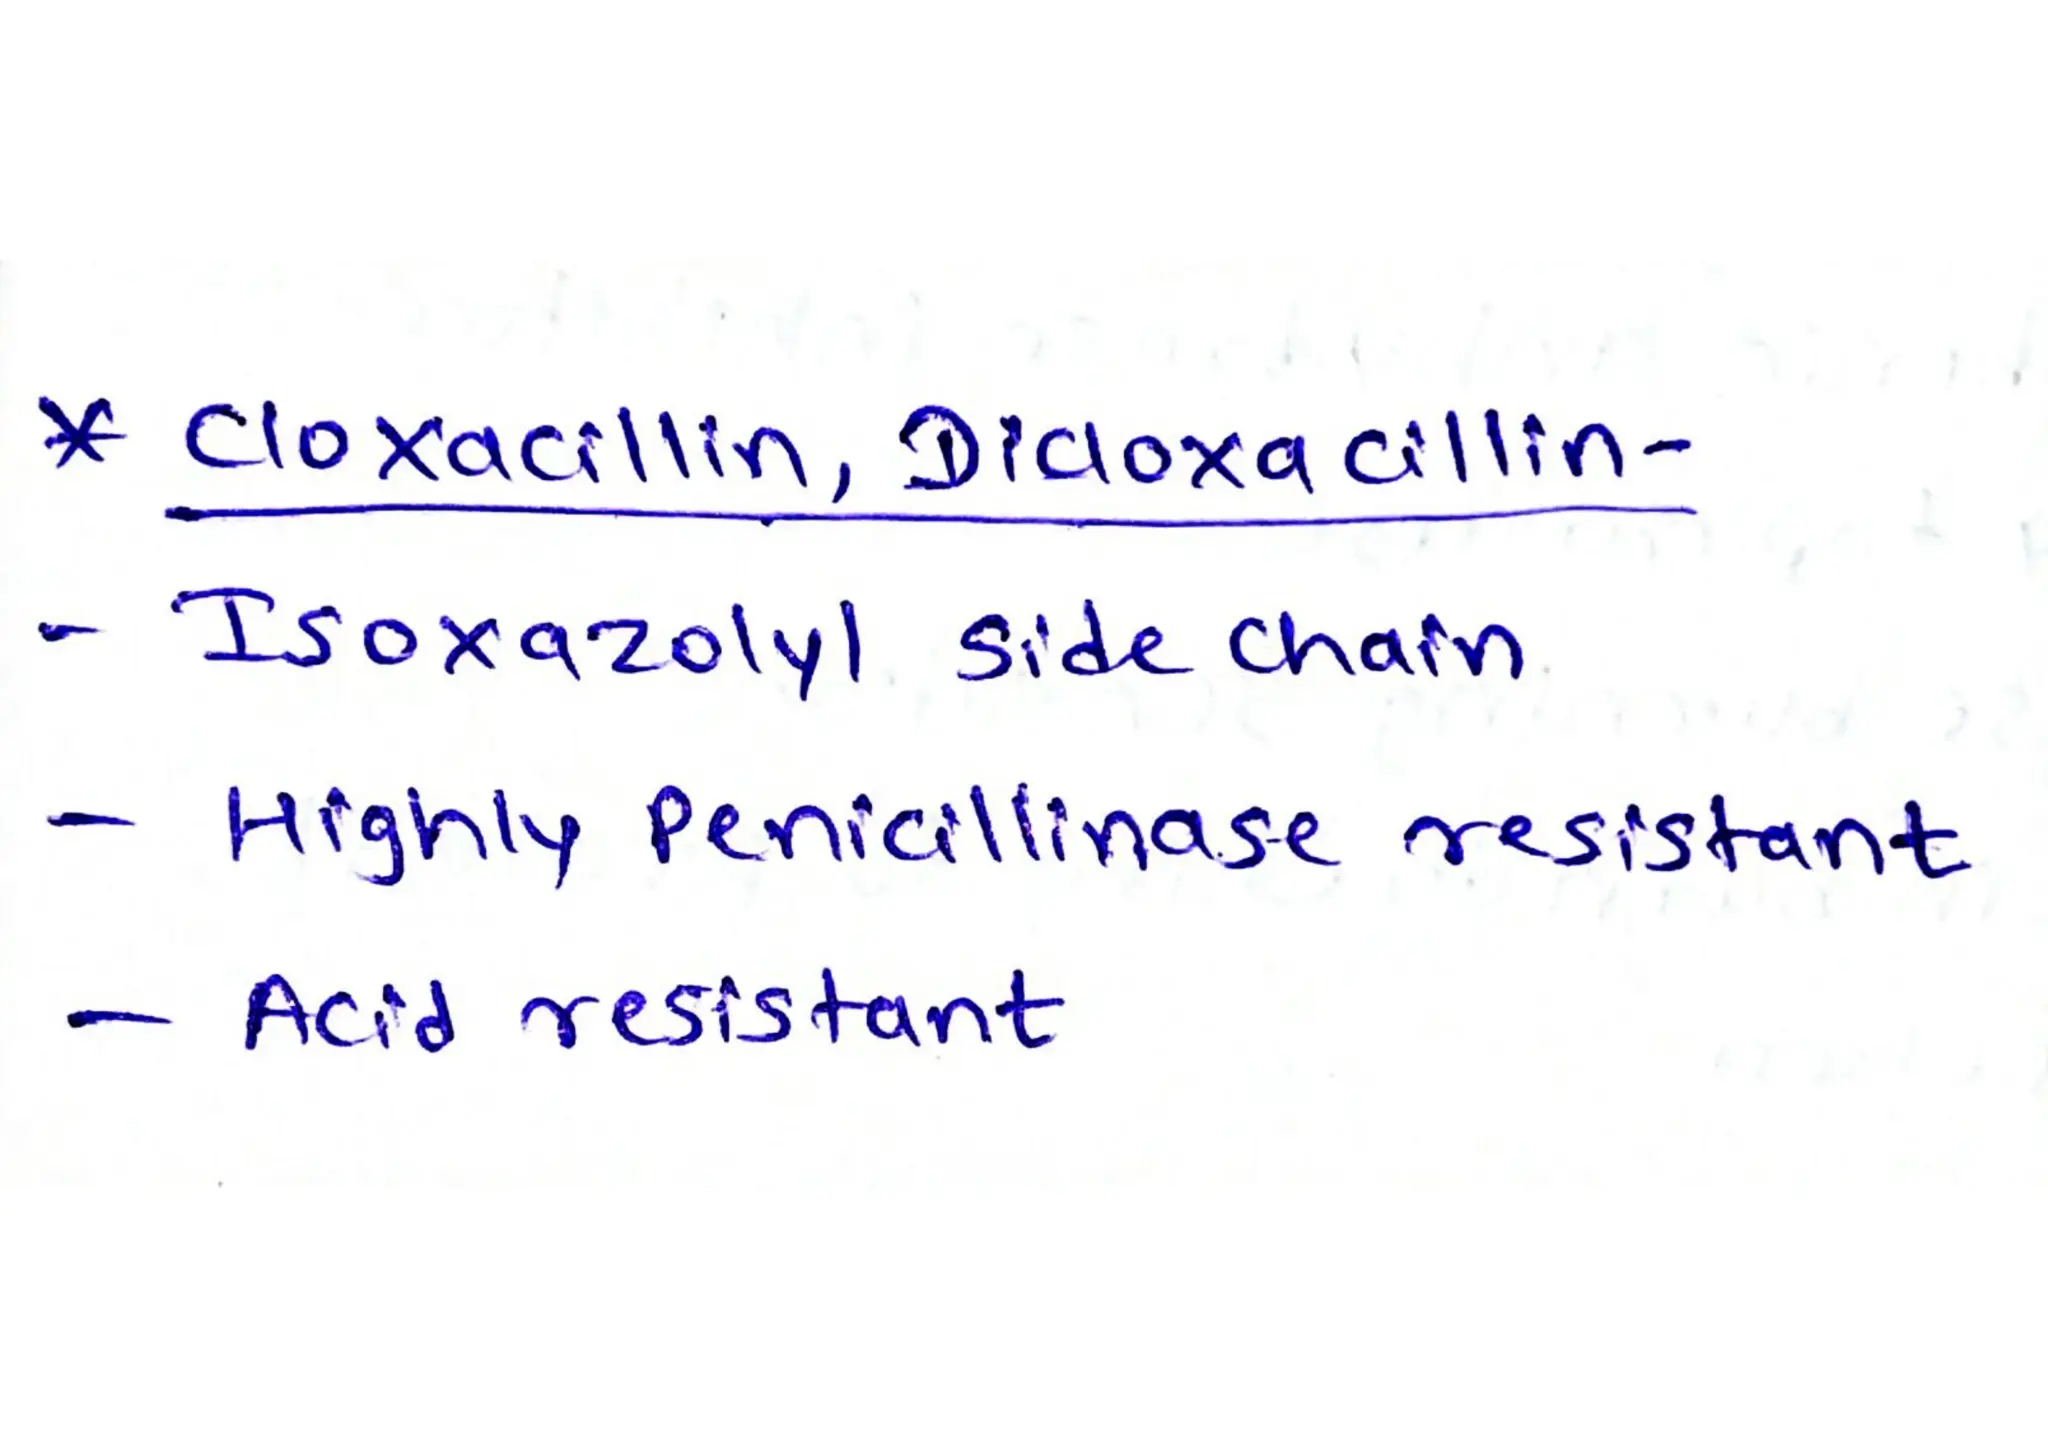 * Cloxacillin, Dicloxacillin-
- Isoxazolyl side chain
- Highly Penicillinase resistant
- Acid resistant